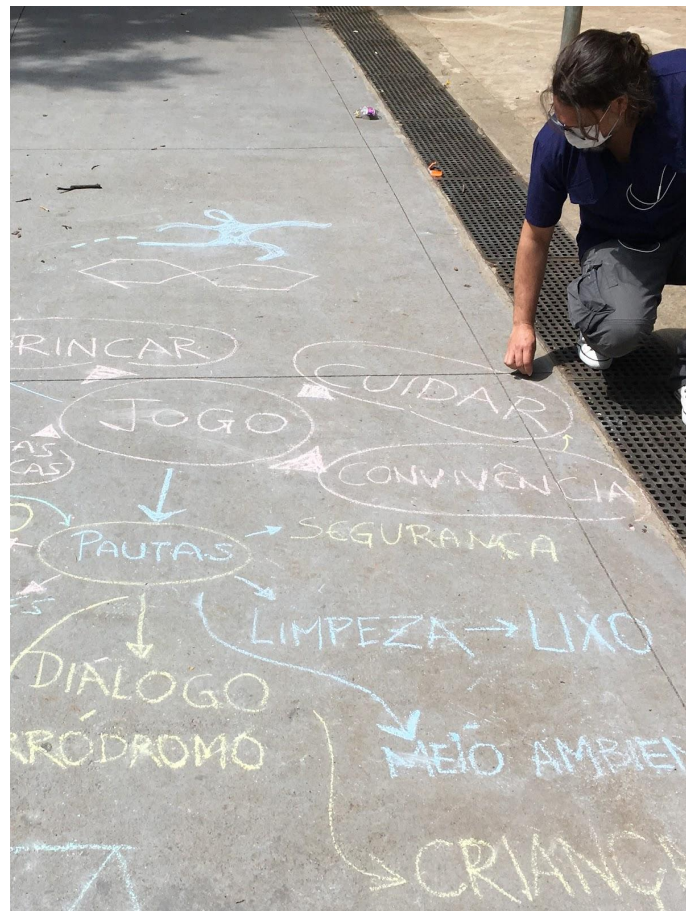 RINCAR
CUIDAR
JOGO
AS
CAS
CONVIVÊNCIA
PAUTAS
SEGURANÇA
LIMPEZA → LIXO
DIÁLOGO
RRÓDROMO
MEIO AMBIEN
CRIANÇ